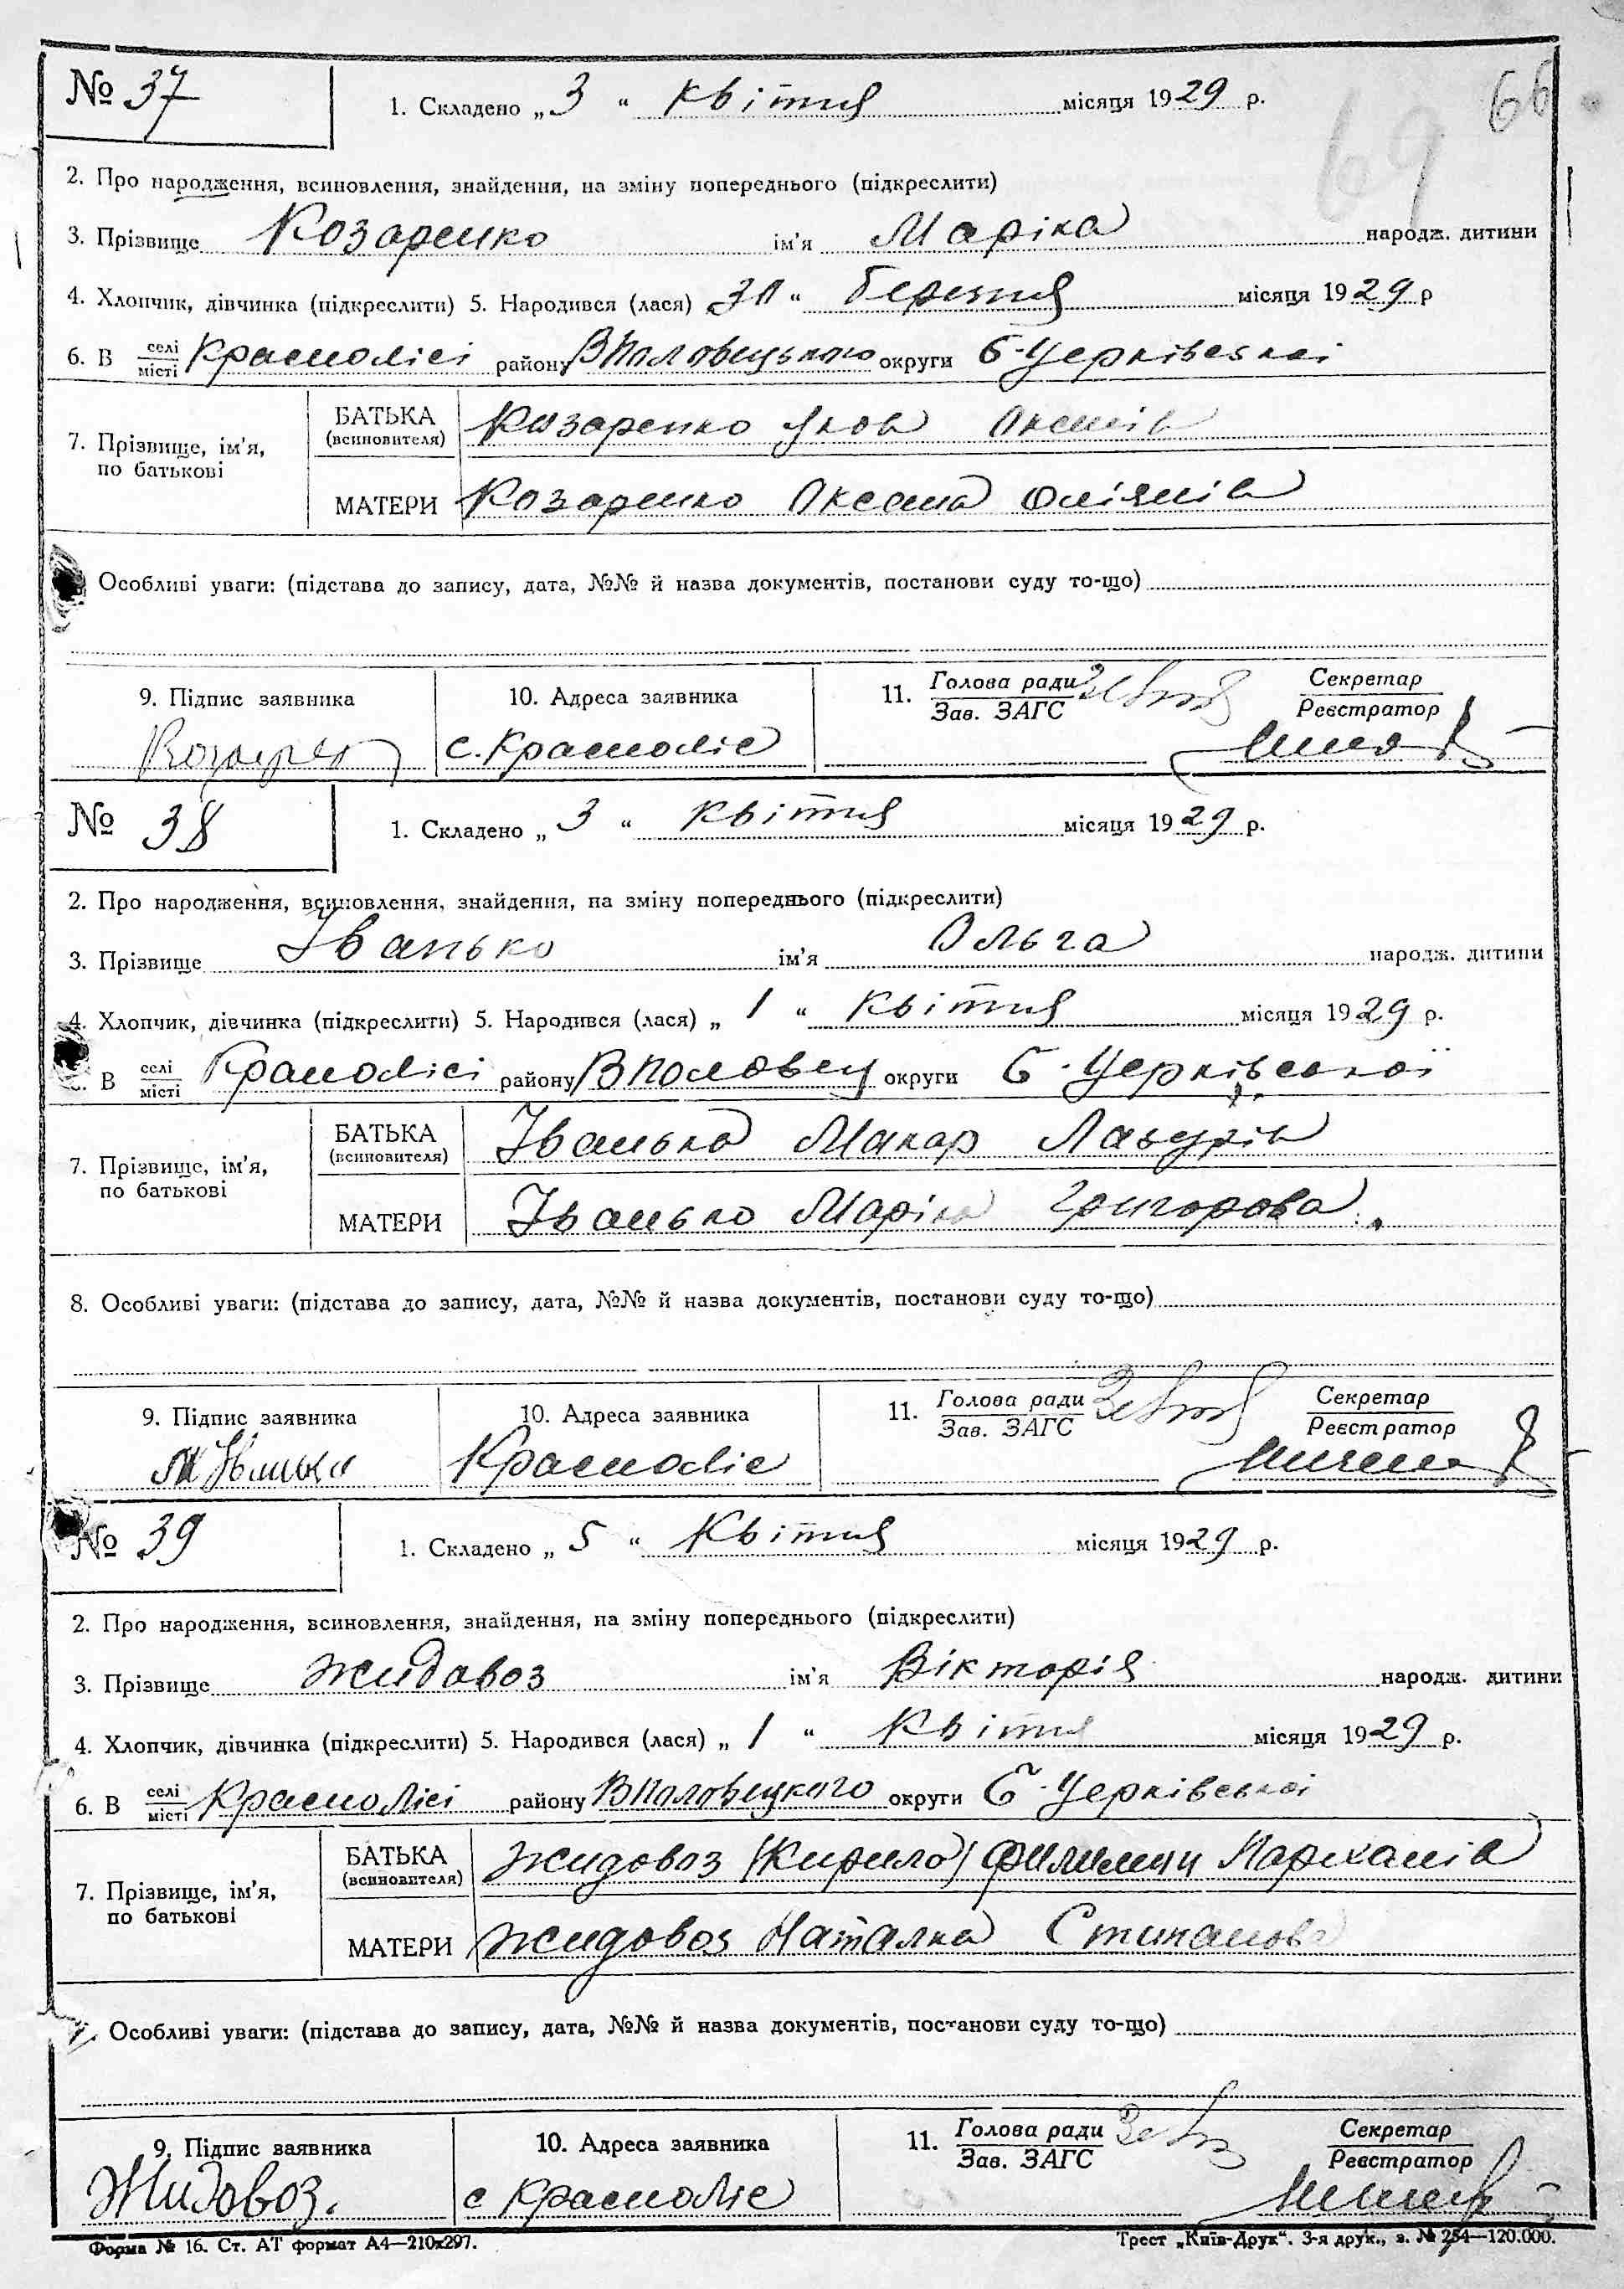 № 37
1. Складено „ 3 “ Квітня місяця 1929 р.
66
69
2. Про народження, всиновлення, знайдення, на зміну попереднього (підкреслити)
3. Прізвище Козаренко ім'я Маріка народж. дитини
4. Хлопчик, дівчинка (підкреслити) 5. Народився (лася) 30 “ березня місяця 1929 р
6. В селі/місті Краснолісі району ВПоловецького округи Б-Церківскоі
7. Прізвище, ім'я, по батькові
БАТЬКА (всиновителя) Козаренко Яков
МАТЕРИ Козаренко Оксана
Особливі уваги: (підстава до запису, дата, №№ й назва документів, постанови суду то-що)
9. Підпис заявника
10. Адреса заявника
11. Голова ради/Зав. ЗАГС
Секретар/Реєстратор
с. Красноліс
№ 38
1. Складено „ 3 “ Квітня місяця 1929 р.
2. Про народження, всиновлення, знайдення, на зміну попереднього (підкреслити)
3. Прізвище Іванько ім'я Ольга народж. дитини
4. Хлопчик, дівчинка (підкреслити) 5. Народився (лася) „ 1 “ Квітня місяця 1929 р.
В селі/місті Краснолісі району ВПоловец округи Б-Церківскої
7. Прізвище, ім'я, по батькові
БАТЬКА (всиновителя) Іванько Макар Лазурів
МАТЕРИ Іванько Маріка Григорова
8. Особливі уваги: (підстава до запису, дата, №№ й назва документів, постанови суду то-що)
9. Підпис заявника
10. Адреса заявника
11. Голова ради/Зав. ЗАГС
Секретар/Реєстратор
М Іванько Красноліс
№ 39
1. Складено „ 5 “ Квітня місяця 1929 р.
2. Про народження, всиновлення, знайдення, на зміну попереднього (підкреслити)
3. Прізвище Жидовоз ім'я Вікторія народж. дитини
4. Хлопчик, дівчинка (підкреслити) 5. Народився (лася) „ 1 “ Квітня місяця 1929 р.
6. В селі/місті Краснолісі району ВПоловецкого округи Б-Церківскоі
7. Прізвище, ім'я, по батькові
БАТЬКА (всиновителя) Жидовоз (Кирило) Филимон Пархамів
МАТЕРИ Жидовоз Наталка Стипанова
Особливі уваги: (підстава до запису, дата, №№ й назва документів, постанови суду то-що)
9. Підпис заявника
10. Адреса заявника
11. Голова ради/Зав. ЗАГС
Секретар/Реєстратор
Жидовоз. с Красноліс
Форма № 16. Ст. АТ формат А4—210х297.
Трест „Київ-Друк“. 3-я друк., з. № 254—120.000.